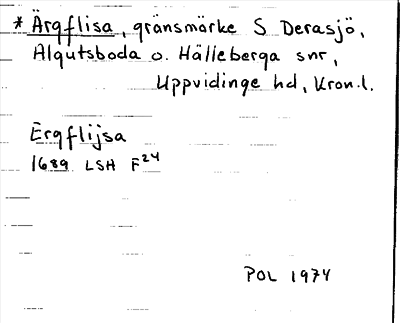 * Ärgflisa, gränsmärke S Derasjö,
Algutsboda o. Hälleberga snr,
Uppvidinge hd, Kron.l.
Ergflijsa
1689 LSH F24
POL 1974